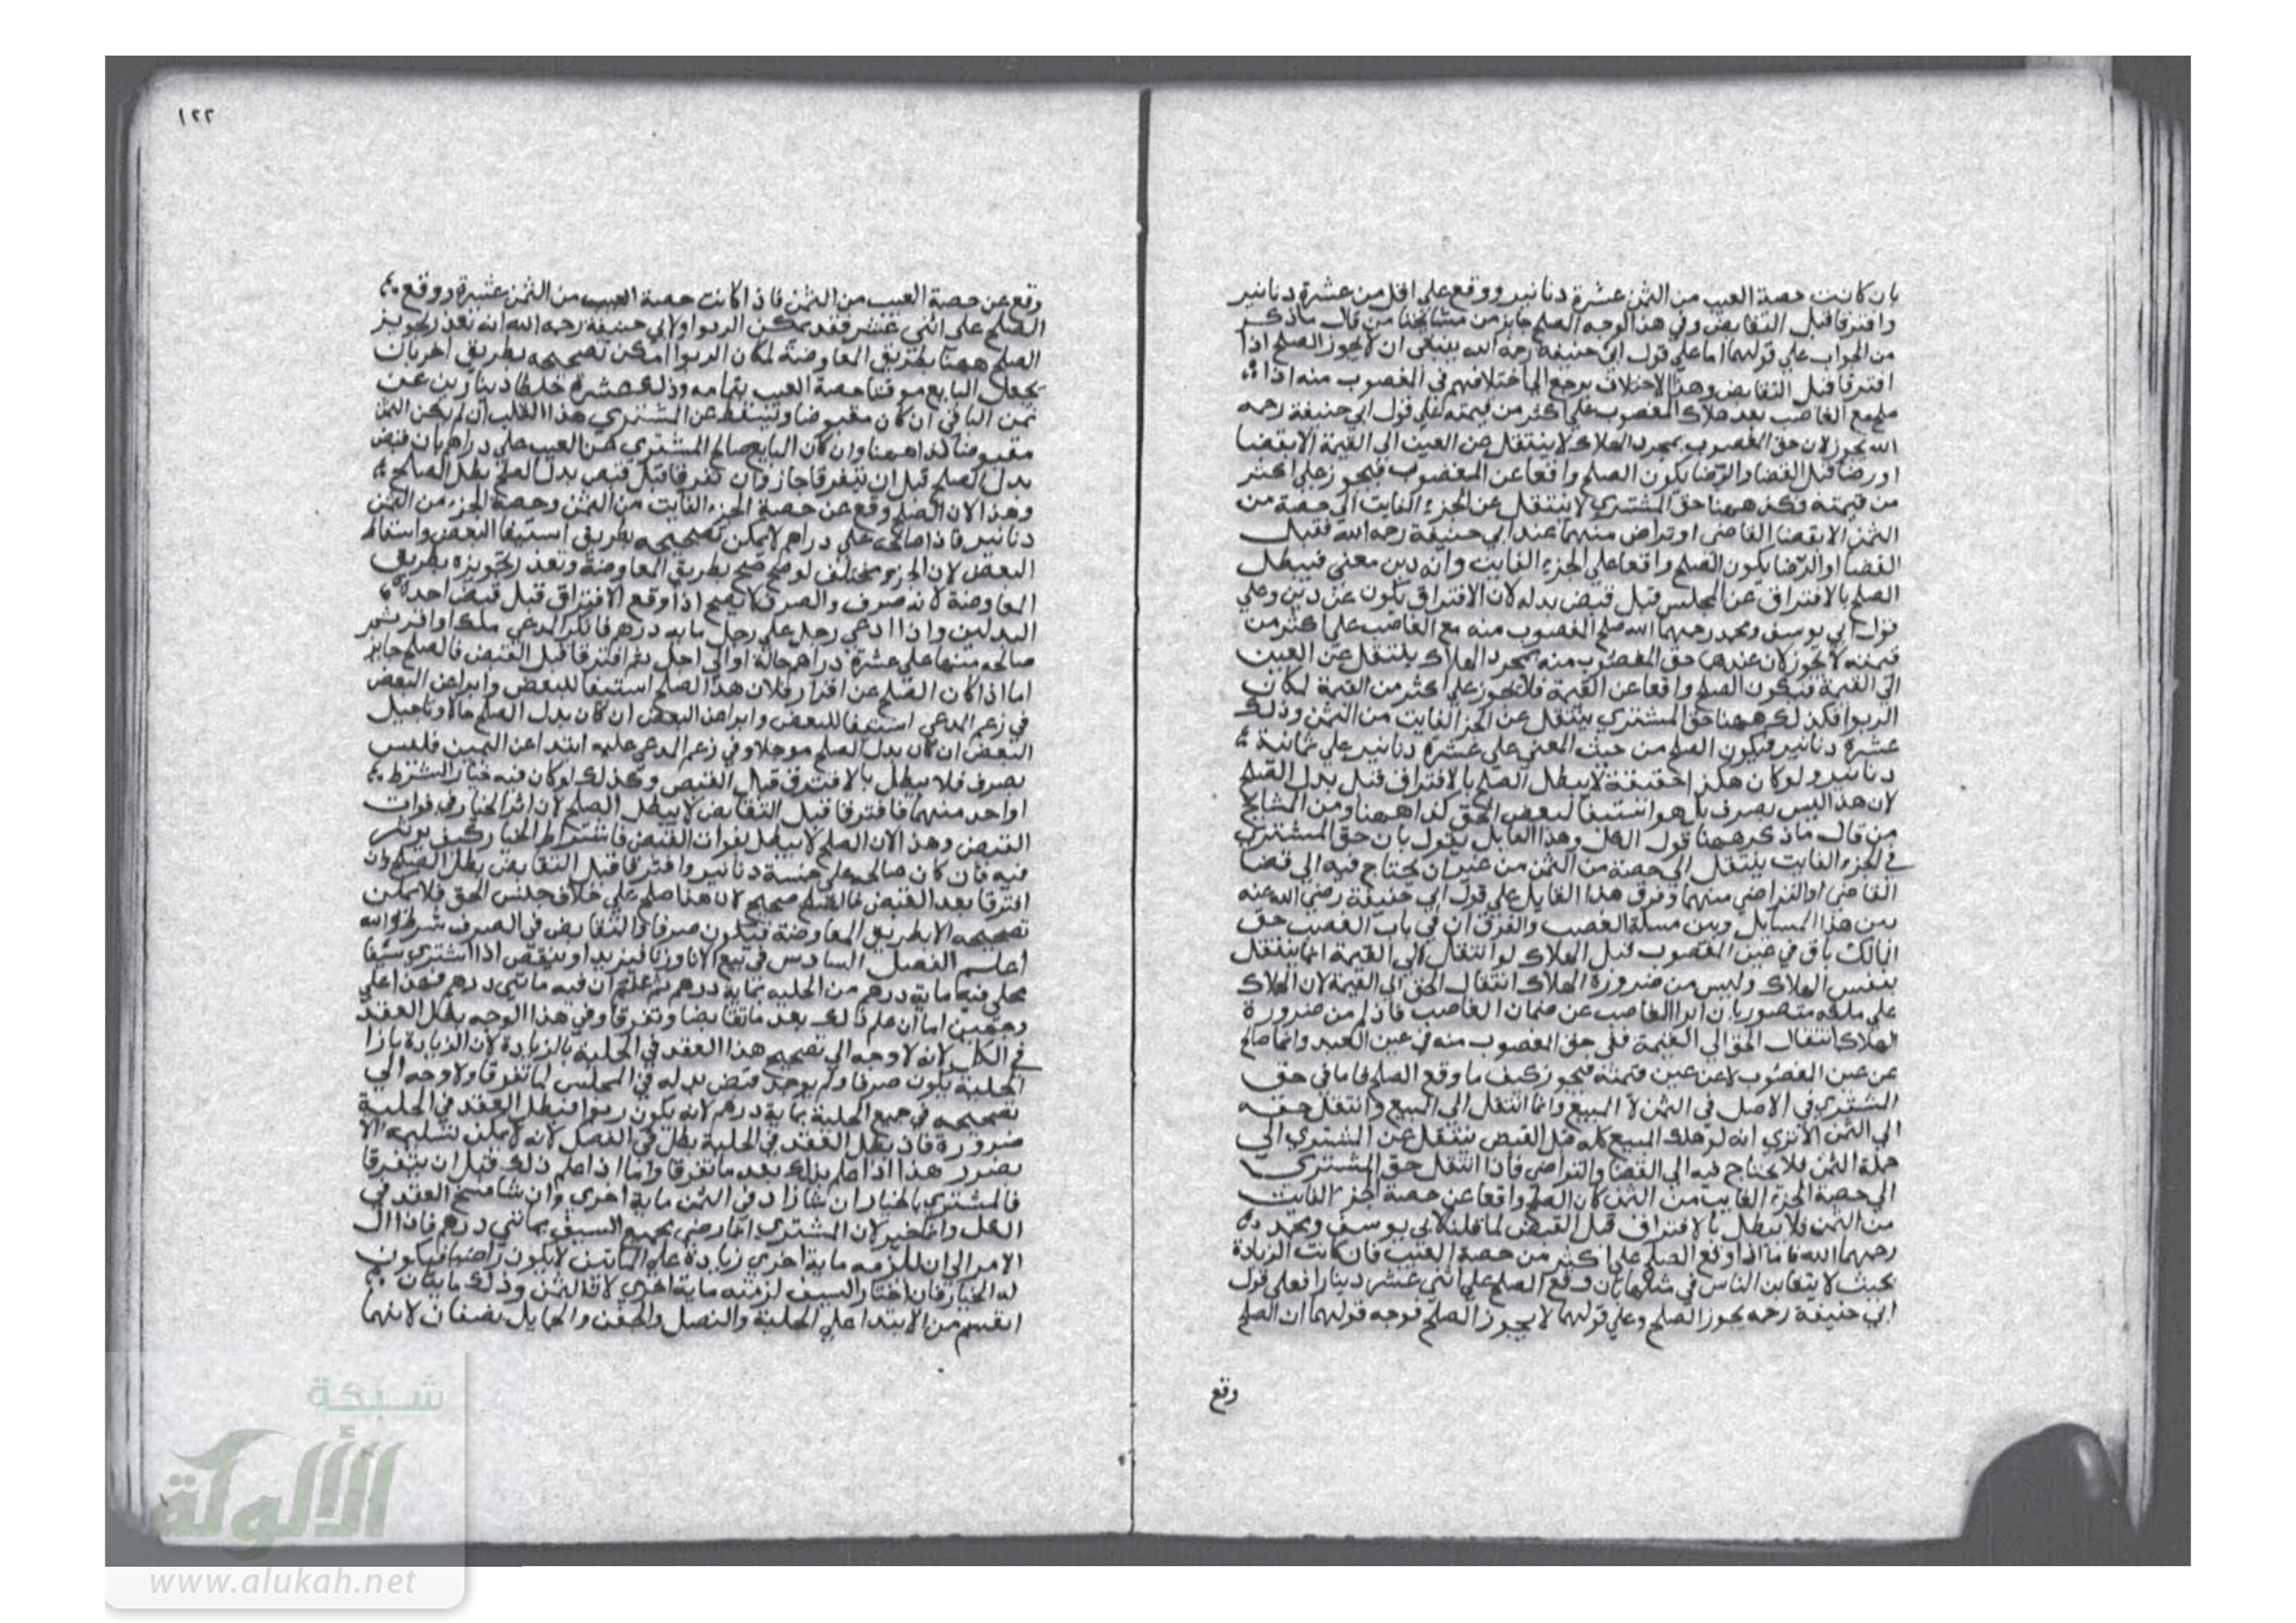 بان كانت حصة العيب من الثمن عشرة دنانير ووقع على اقل من عشرة دنانير
وافترقا قبل التقابض وفي هذا الوجه الصلح جايز من مشايخنا من قال ما ذكر
من الجواب على قولهما اما على قول ابي حنيفة رحمه الله ينبغي ان لا يجوز الصلح اذا
افترقا قبل التقابض وهذا الاختلاف يرجع الى اختلافهم في المغصوب منه اذا
صلح مع الغاصب بعد هلاك المغصوب على اكثر من قيمته فعلى قول ابي حنيفة رحمه
الله يجوز لان حق المغصوب بمجرد الهلاك لا ينتقل من العين الى القيمة الا بقضا
او رضا فقبل القضا والرضا يكون الصلح واقعا عن المغصوب فيجوز على اكثر
من قيمته فكذ ههنا حق المشتري لا ينتقل عن الجزء الفايت الى حصة من
الثمن الا بقضا القاضي او تراض منهما عند ابي حنيفة رحمه الله فقبل
القضا او الرضا يكون الصلح واقعا على الجزء الفايت وانه دين معنى فيبطل
الصلح بالافتراق عن المجلس قبل قبض بدله لان الافتراق يكون عن دين وعلى
قول ابي يوسف ومحمد رحمهما الله صلح المغصوب منه مع الغاصب على اكثر من
قيمته لا يجوز لان عندهما حق المغصوب منه بمجرد الهلاك ينتقل عن العين
الى القيمة فيكون الصلح واقعا عن القيمة فلا يجوز على اكثر من القيمة لمكان
الربوا فكذلك ههنا حق المشتري ينتقل عن الجز الفايت من الثمن وذلك
عشرة دنانير فيكون الصلح من حيث المعني على عشرة دنانير على ثمانية
دنانير ولو كان هكذا حقيقة لا يبطل الصلح بالافتراق قبل بدل الصلح
لان هذا ليس بصرف بل هو استيفا لبعض الحق كذا ههنا ومن المشايخ
من قال ما ذكر ههنا قول الكل وهذا القايل يقول بان حق المشتري
في الجزء الفايت ينتقل الى حصة من الثمن من غير ان يحتاج فيه الى قضا
القاضي او التراضي منهما وفرق هذا القايل على قول ابي حنيفة رضي الله عنه
بين هذا المسايل وبين مسلة الغصب والفرق ان في باب الغصب حق
المالك باق في عين المغصوب قبل الهلاك لو انتقل الى القيمة انما ينتقل
بنفس الهلاك وليس من ضرورة الهلاك انتقال الحق الى القيمة لان الهلاك
على ملكه متصور بان ابرا الغاصب عن ضمان الغاصب فاذا لم من ضرورة
الهلاك انتقال الحق الى القيمة فبقى حق المغصوب منه في عين العبد وانما صالح
عن عين المغصوب لا عن عين قيمته فيجوز كيف ما وقع الصلح فاما في حق
المشتري في الاصل في الثمن لا المبيع وانما انتقل الى المبيع وانتقل حقه
الى الثمن الا تري انه لو هلك المبيع كله قبل القبض ينتقل عن المشتري الى
جملة الثمن فلا يحتاج فيه الى القضا والتراضي فاذا انتقل حق المشتري
الى حصة الجزء الفايت من الثمن كان الصلح واقعا عن حصة الجزء الفايت
من الثمن فلا تبطل بالافتراق قبل القبض لما قلنا لابي يوسف ومحمد
رحمهما الله فاما اذا وقع الصلح على اكثر من حصة العيب فان كانت الزيادة
بحيث لا يتغابن الناس في مثلها بان وقع الصلح على اثني عشر دينارا فعلى قول
ابي حنيفة رحمه يجوز الصلح وعلى قولهما لا يجوز الصلح فوجه قولهما ان الصلح
وقع
١٢٢
وقع عن حصة العيب من الثمن فاذا كانت حصة العيب من الثمن عشرة ووقع
الصلح على اثني عشر فقد يمكن الربوا ولابي حنيفة رحمه الله انه تعذر تجويز
الصلح ههنا بطريق المعاوضة لمكان الربوا امكن تصحيحه بطريق اخر بان
يجعل البايع حصة العيب بتمامه وذلك عشرة دينارين عن
ثمن الباقي ان كان مقبوضا عن المشتري هذا ان لم يكن الثمن
مقبوضا كذا ههنا وان كان البايع صالح المشتري من العيب على دراهم بان قبض
بدل الصلح قبل ان يتفرقا جاز وان تفرقا قبل قبض بدل الصلح بطل الصلح
وهذا لان الصلح وقع عن حصة الجزء الفايت من الثمن وحصة الجزء من الثمن
دنانير فاذا صالحه على دراهم لا يمكن تصحيحه بطريق استيفا البعض واسقاط
البعض لان الجزء مختلف لو صح صح بطريق المعاوضة وتعذر تجويزه بطريق
المعاوضة لانه صرف والصرف لا يصح اذا وقع الافتراق قبل قبض احد
البدلين واذا ادعي رجل على رجل مايه درهم فانكر المدعي او اقر ثم
صالحه منها على عشرة دراهم حالة او الى اجل ثم افترقا قبل القبض فالصلح جايز
اما اذا كان الصلح عن اقرار فلان هذا الصلح استيفا للبعض وابرا عن البعض
في زعم المدعي استيفا للبعض وابرا عن البعض ان كان بدل الصلح حالا وتاجيل
البعض ان كان بدل الصلح موجلا وفي زعم المدعى عليه ابتدا عن اليمين فليس
بصرف فلا يبطل بالافتراق قبل القبض وكذلك لو كان فيه خيار الشرط
او احد منهما فافترقا قبل التقابض لا يبطل الصلح لان اثر الخيار في فوات
القبض وهذا لان الصلح لا يبطل لفوات القبض فاشتراط الخيار كيف يوثر
فيه فان كان صالحه على خمسة دنانير وافترقا قبل التقابض بطل الصلح وان
افترقا بعد القبض فالصلح صحيح لان هذا صلح على خلاف جنس الحق فلا يمكن
تصحيحه الا بطريق المعاوضة فيكون صرفا والتقابض في الصرف شرط والله
اعلم الفصل السادس في بيع الانا وزنا فيزيد او ينقص اذا اشتري سيفا
محلى فيه مايه درهم من الحليه بماية درهم ثم علم ان فيه مايتي درهم فهذا على
وجهين اما ان علم ذلك بعد ما تقابضا وتفرقا وفي هذا الوجه بطل العقد
في الكل لانه لا وجه الى تصحيح هذا العقد في الحلية بالزيادة لان الزيادة بازا
الحلية يكون صرفا ولم يوجد قبض بدله في المجلس لما تفرقا ولا وجه الى
تصحيحه في جميع الحلية بماية درهم لانه يكون ربوا فبطل العقد في الحلية
ضرورة فاذا بطل العقد في الحلية بطل في النصل لانه لا يمكن تسليمه الا
بضرر هذا اذا علم بذلك بعد ما تفرقا واما اذا علم ذلك قبل ان يتفرقا
فالمشتري بالخيار ان شا زاد في الثمن ماية اخري وان شا فسخ العقد في
الكل وانما خير لان المشتري انما رضي بجميع السيف بمائتي درهم فاذا ال
الامر الى ان يلزمه ماية اخري زيادة على المائتين لا يكون راضيا فيكون
له الخيار فان اختار السيف لزمته ماية اخري لان الثمن وذلك مايتان
انقسم من الابتدا على الحلية والنصل والجفن والحمايل نصفان لانهما
شبكة
الألوكة
www.alukah.net